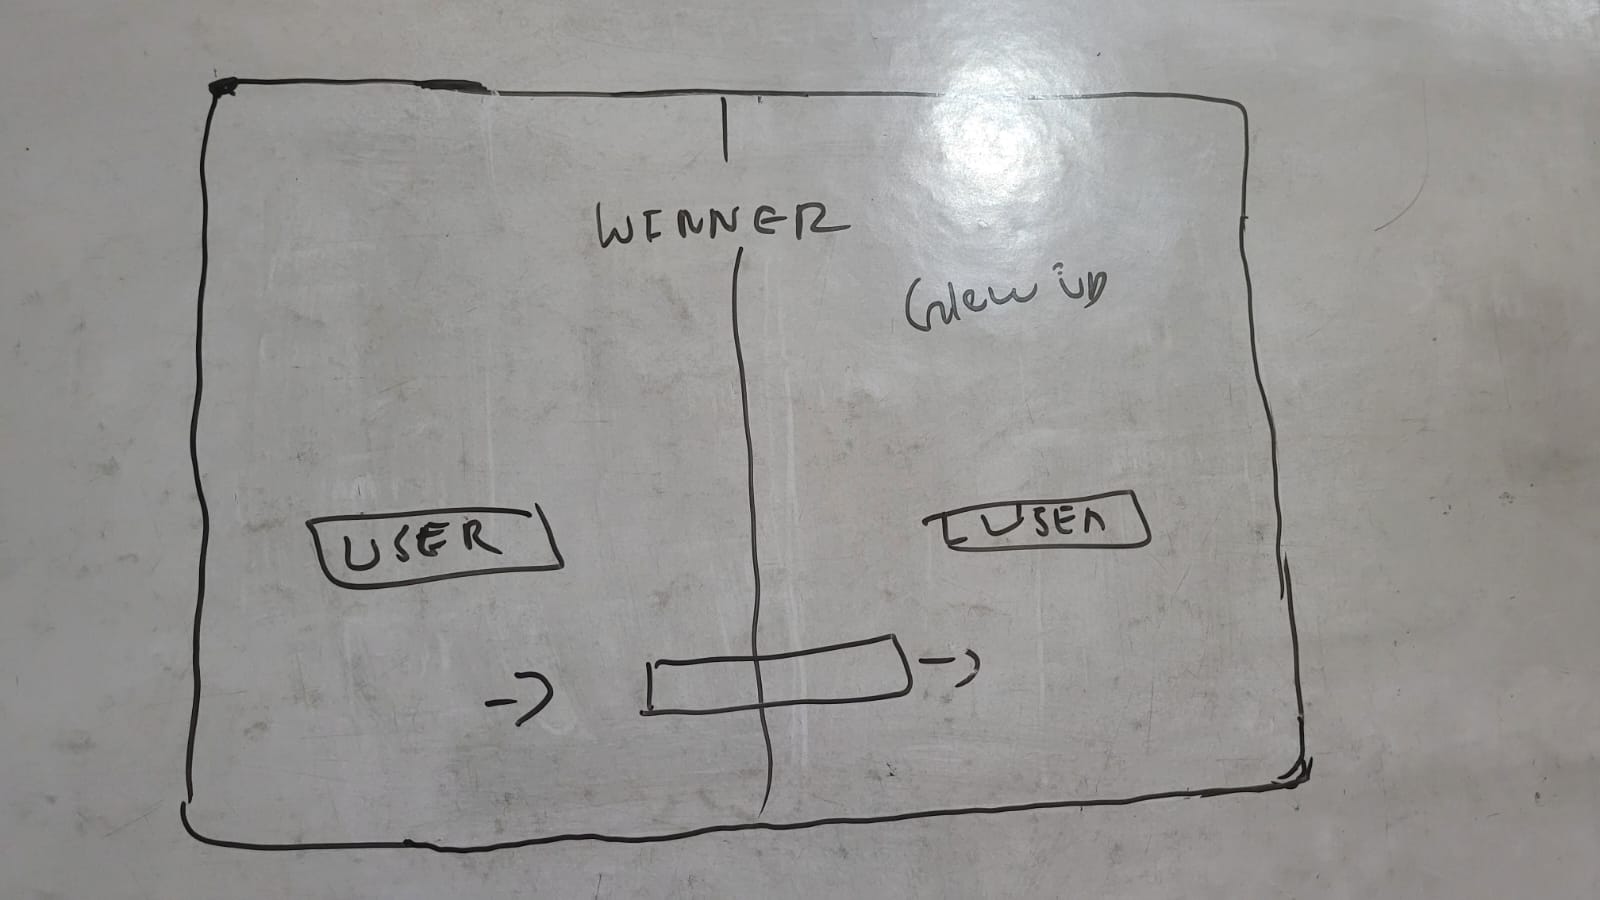 WINNER
Glow up
USER
USER
->
->